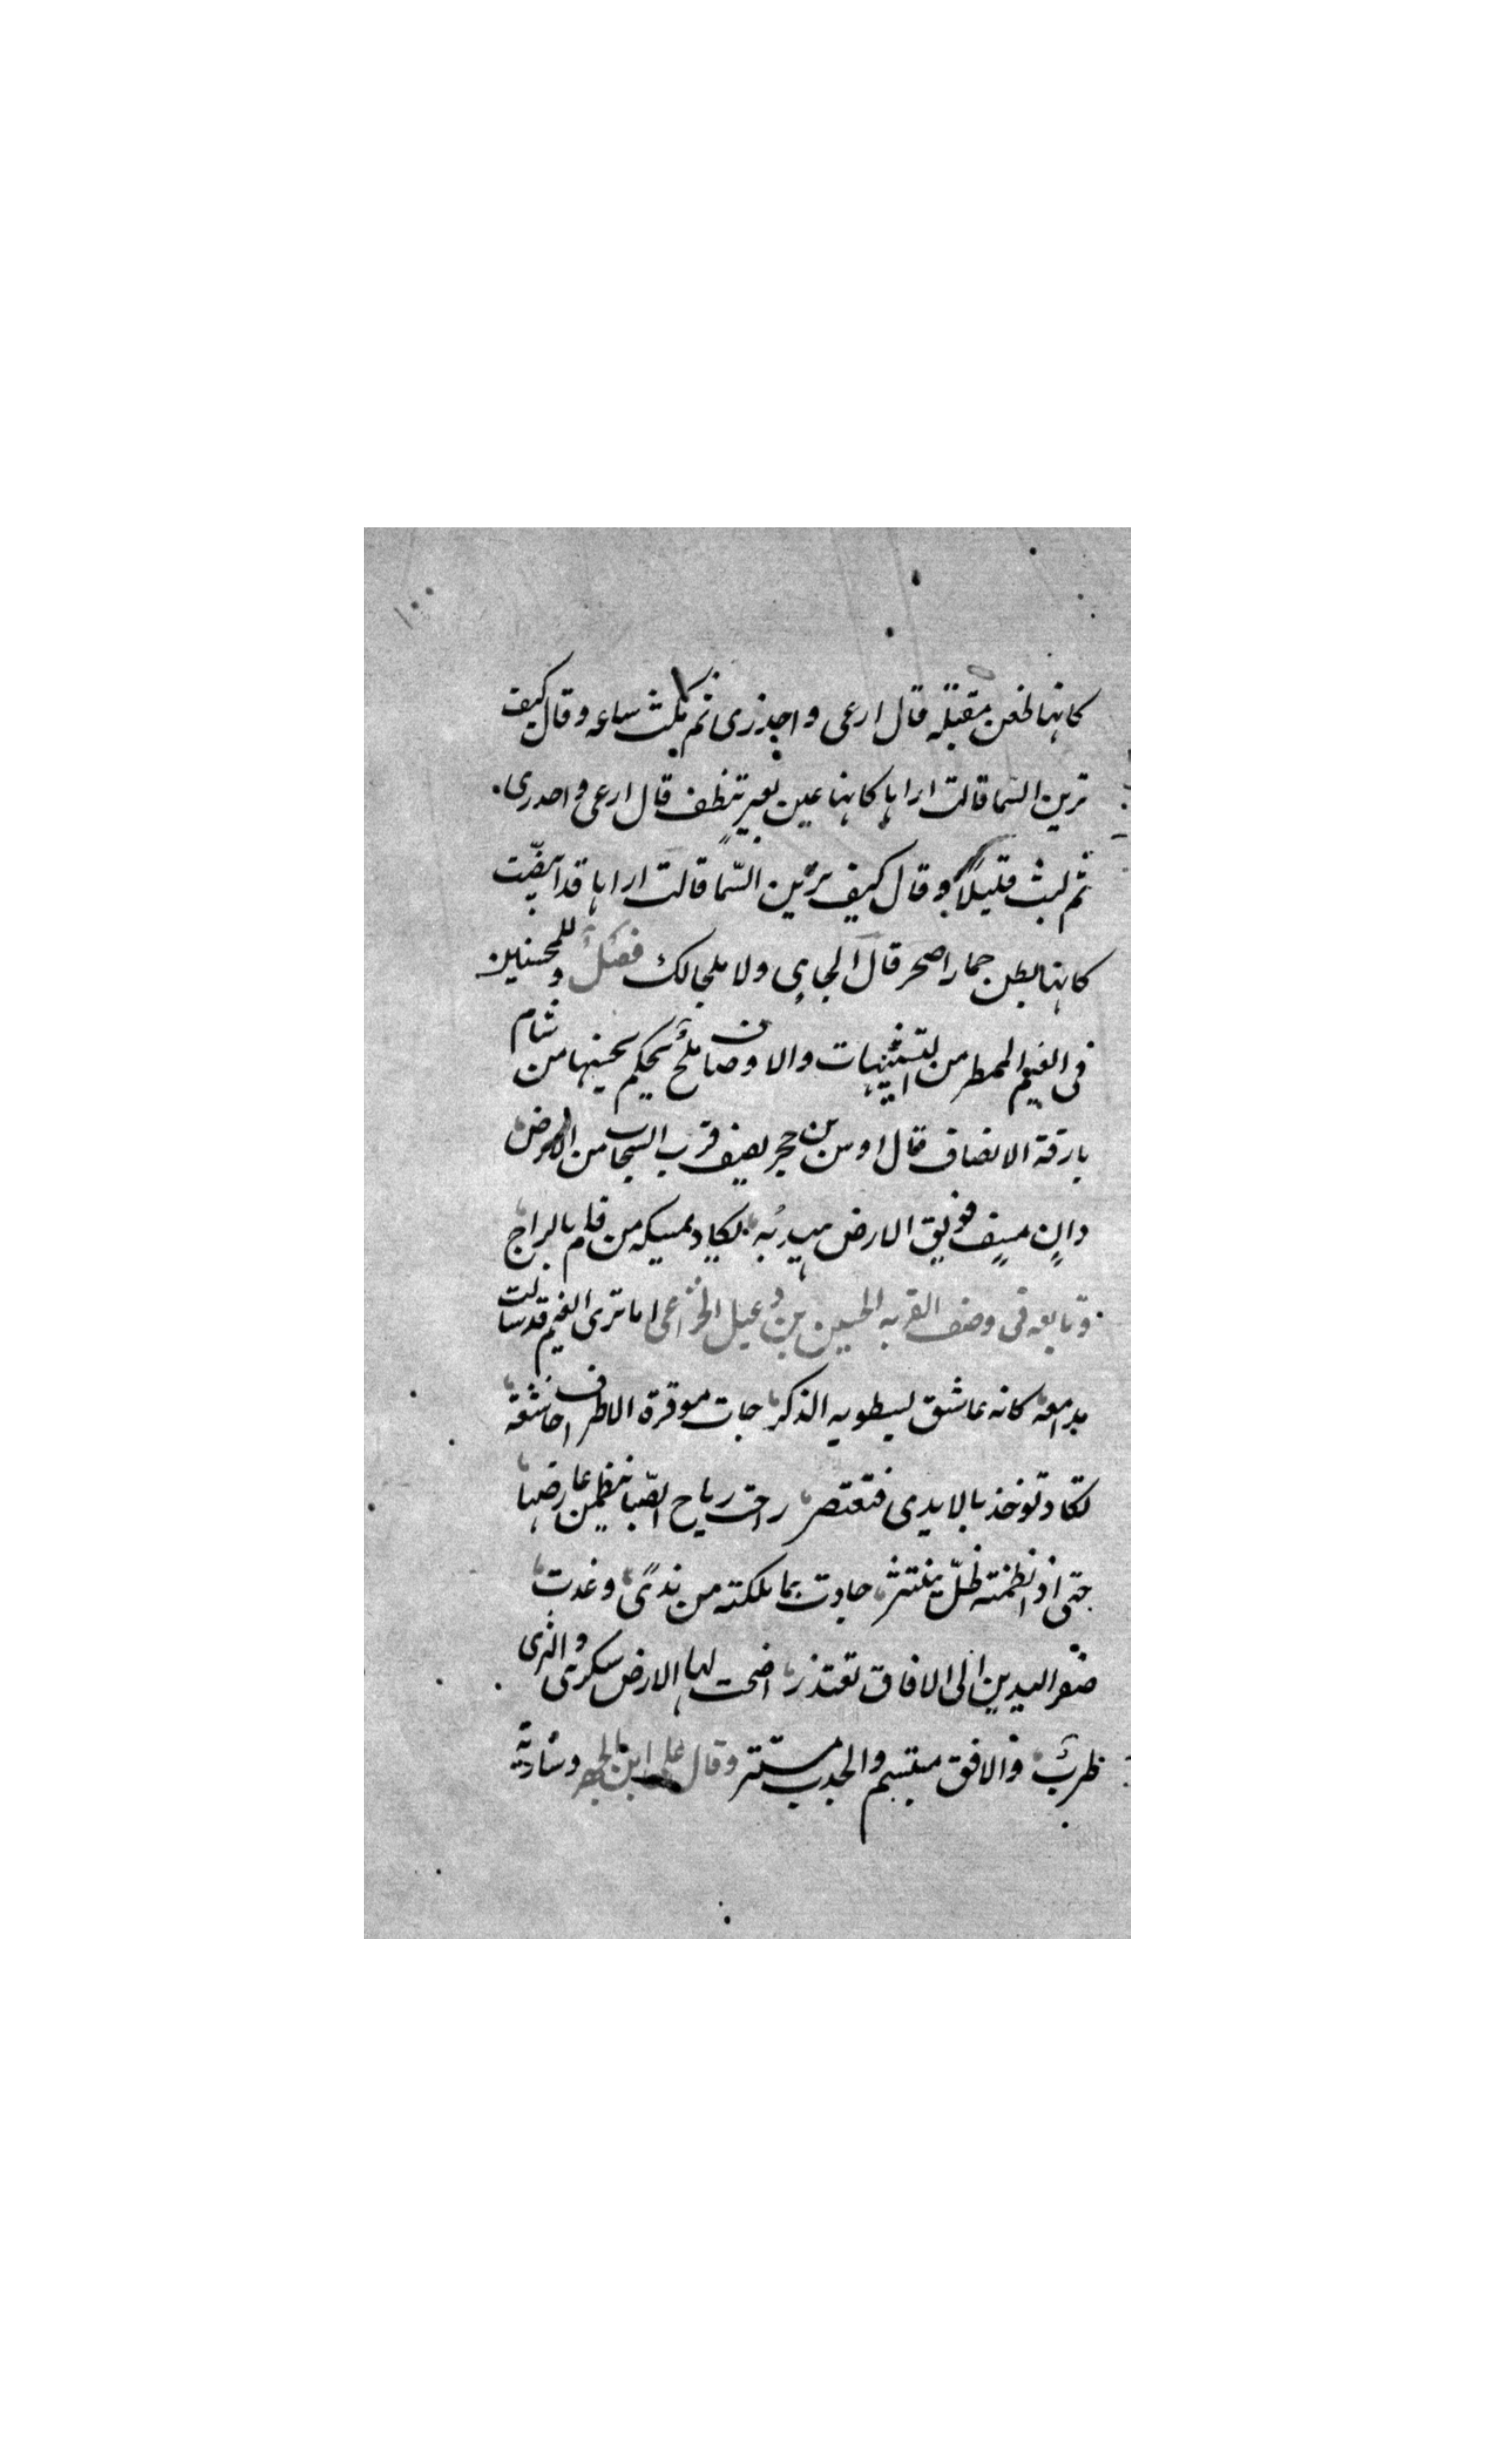 كانها ظعن مقبله قال ارعى واحذرى ثم مكث ساعه وقال كيف
ترين السما قالت اراها كانها عين بعير تنظف قال ارعى واحدرى
ثم لبث قليلاً وقال كيف ترين السّما قالت اراها قد ابيضّت
كانها بطن حمار اصحر قال الجاى ولا ملجا لك فصل وللمحسنين
فى الغيم الممطر من التشبيهات والاوصاف ملح يحكم بحسنها من شام
بارقة الانصاف قال اوس بن حجر يصف قرب السحاب من الارض
دانٍ مسفٍ فويق الارض هيدبُه يكاد يمسكه من قام بالراح
وتابعه فى وصف القربه الحسين بن دعبل الخزاعى اما ترى الغيم قد سالت
مدامعه كانه عاشق يسطو به الذكر جات موقرة الاطراف خاشعة
تكاد توخذ بالايدى فتعتصر راحت رياح الصّبا ينظمن عارضها
حتى اذ انظمته ظلّ ينتثر جادت بما ملكته من ندىً وغدت
صفر اليدين الى الافاق تعتذر اضحت لها الارض سكرى والثرى
طربٌ والافق مبتسم والجدب مستتر وقال على ابن الجهم وسارية